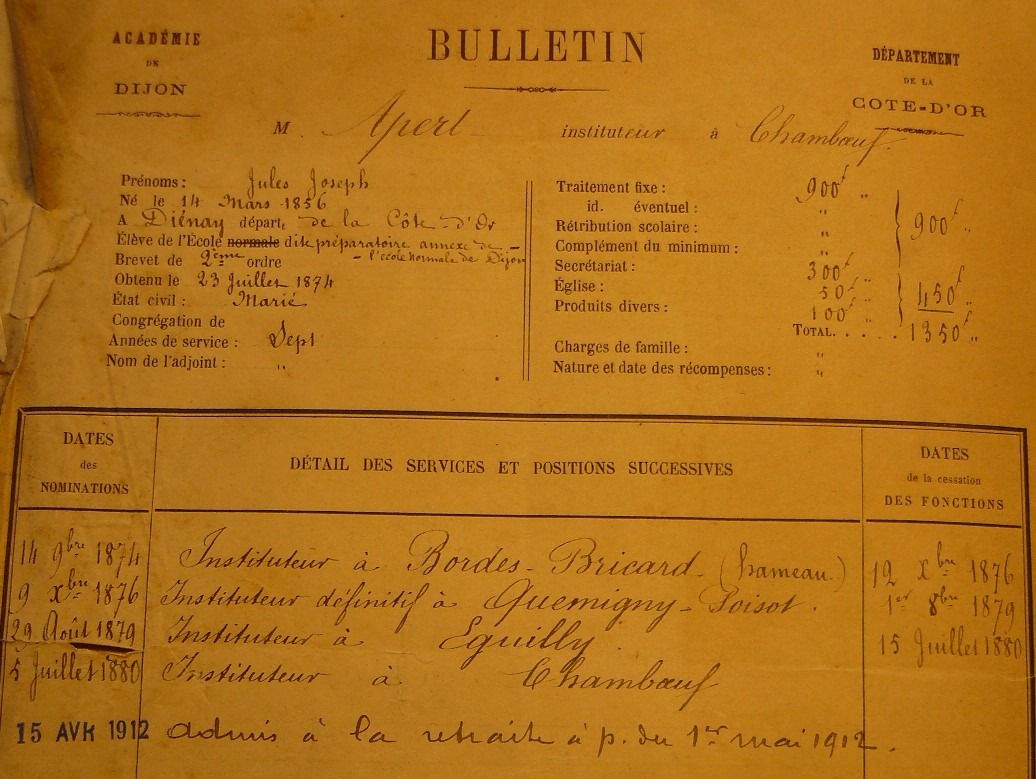 ACADÉMIE
DE
DIJON
BULLETIN
DÉPARTEMENT
DE LA
COTE-D'OR
M. Apert instituteur à Chambœuf.
Prénoms : Jules Joseph
Né le 14 Mars 1856
A Diénay départ. de la Côte-d'Or
Élève de l'École normale dite préparatoire annexe de -
- l'école normale de Dijon
Brevet de 2ème ordre
Obtenu le 23 Juillet 1874
État civil : Marié
Congrégation de
Années de service : Sept
Nom de l'adjoint : "
Traitement fixe : 900f "
id. éventuel : "
Rétribution scolaire : " 900f "
Complément du minimum : "
Secrétariat : 300f "
Église : 50f " 450f "
Produits divers : 100f "
TOTAL. . . . . 1350f "
Charges de famille : "
Nature et date des récompenses : "
DATES
des
NOMINATIONS
DÉTAIL DES SERVICES ET POSITIONS SUCCESSIVES
DATES
de la cessation
DES FONCTIONS
14 9bre 1874 Instituteur à Bordes-Bricard (hameau) 12 Xbre 1876
9 Xbre 1876 Instituteur définitif à Quemigny-Poisot. 1er 8bre 1879
29 Août 1879 Instituteur à Eguilly. 15 Juillet 1880
5 Juillet 1880 Instituteur à Chambœuf
15 AVR 1912 admis à la retraite à p. du 1er mai 1912.